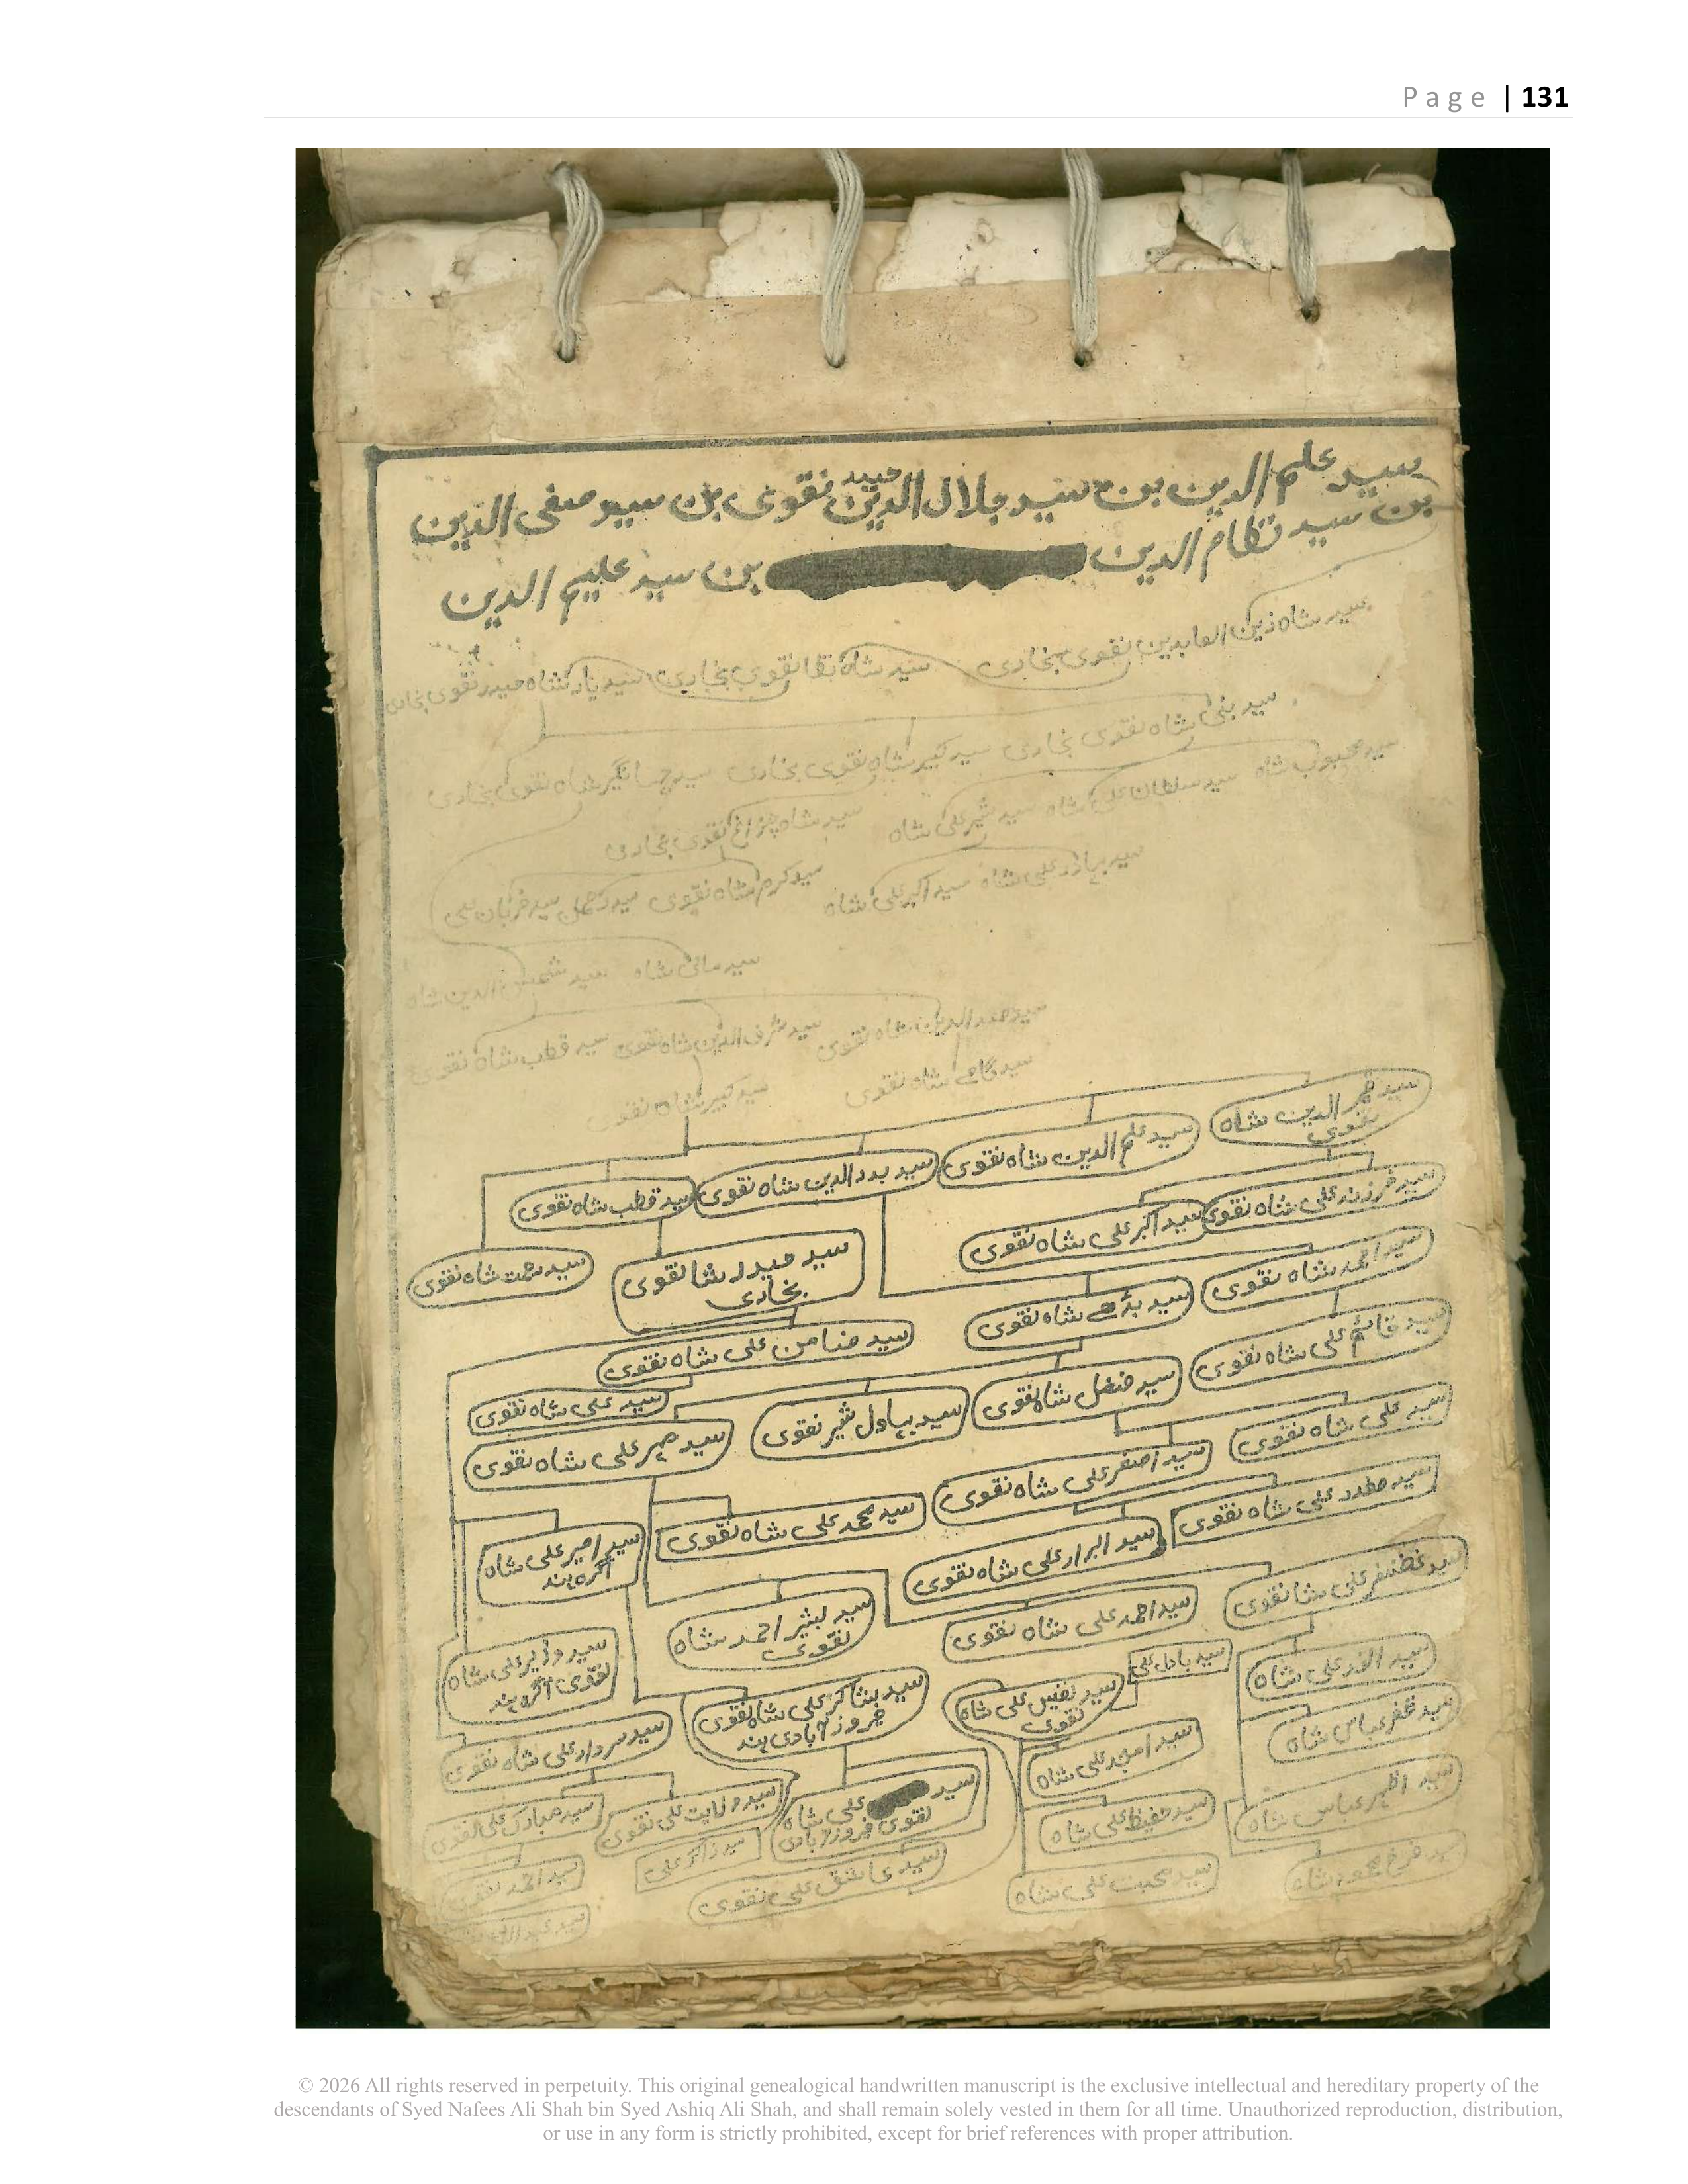 Page | 131
سید علم الدین بن سید جلال الدین حیدر نقوی بن سید صفی الدین
بن سید نظام الدین بن سید علیم الدین
سید شاہ زین العابدین نقوی بخاری سید شاہ بقا نقوی بخاری شاہ حیدر نقوی بخاری
شاہ نقوی بخاری سید کبیر شاہ نقوی بخاری سید جہانگیر شاہ نقوی بخاری
سید محبوب شاہ سید سلطان علی شاہ سید شیر علی شاہ سید شاہ چراغ نقوی بخاری
سید بہادر علی شاہ سید اکبر علی شاہ سید کرم شاہ نقوی سید قربان علی
شاہ سید شمس الدین شاہ
شاہ نقوی سید شرف الدین شاہ نقوی سید قطب شاہ نقوی
شاہ نقوی سید کبیر شاہ نقوی
الدین شاہ نقوی
سید علم الدین شاہ نقوی
سید بدرالدین شاہ نقوی
سید قطب شاہ نقوی
سید فرزند علی شاہ نقوی
سید اکبر علی شاہ نقوی
سید حیدر شا نقوی بخاری
سید رحمت شاہ نقوی
سید احمد شاہ نقوی
سید بڈھے شاہ نقوی
سید ضامن علی شاہ نقوی
سید قائم علی شاہ نقوی
سید فضل شاہ نقوی
سید بہاول شیر نقوی
سید علی شاہ نقوی
سید علی شاہ نقوی
سید مہر علی شاہ نقوی
سید اصغر علی شاہ نقوی
سید صفدر علی شاہ نقوی
سید محمد علی شاہ نقوی
سید امیر علی شاہ آگرہ ہند
سید ابرار علی شاہ نقوی
سید غضنفر علی شا نقوی
سید احمد علی شاہ نقوی
سید بشیر احمد شاہ نقوی
سید وزیر علی شاہ نقوی آگرہ ہند
سید بادل علی
علی شاہ
سید نفیس علی شاہ نقوی
سید شاکر علی شاہ نقوی فیروز آبادی ہند
سید ظفر عباس شاہ
سید امجد علی شاہ
سید سردار علی شاہ نقوی
سید اظہر عباس شاہ
سید حفیظ علی شاہ
سید علی شاہ نقوی فیروز آبادی
سید ولایت علی نقوی
سید مبارک علی نقوی
سید ذاکر علی
سید محبت علی شاہ
سید عاشق علی نقوی
سید احمد نقوی
© 2026 All rights reserved in perpetuity. This original genealogical handwritten manuscript is the exclusive intellectual and hereditary property of the
descendants of Syed Nafees Ali Shah bin Syed Ashiq Ali Shah, and shall remain solely vested in them for all time. Unauthorized reproduction, distribution,
or use in any form is strictly prohibited, except for brief references with proper attribution.